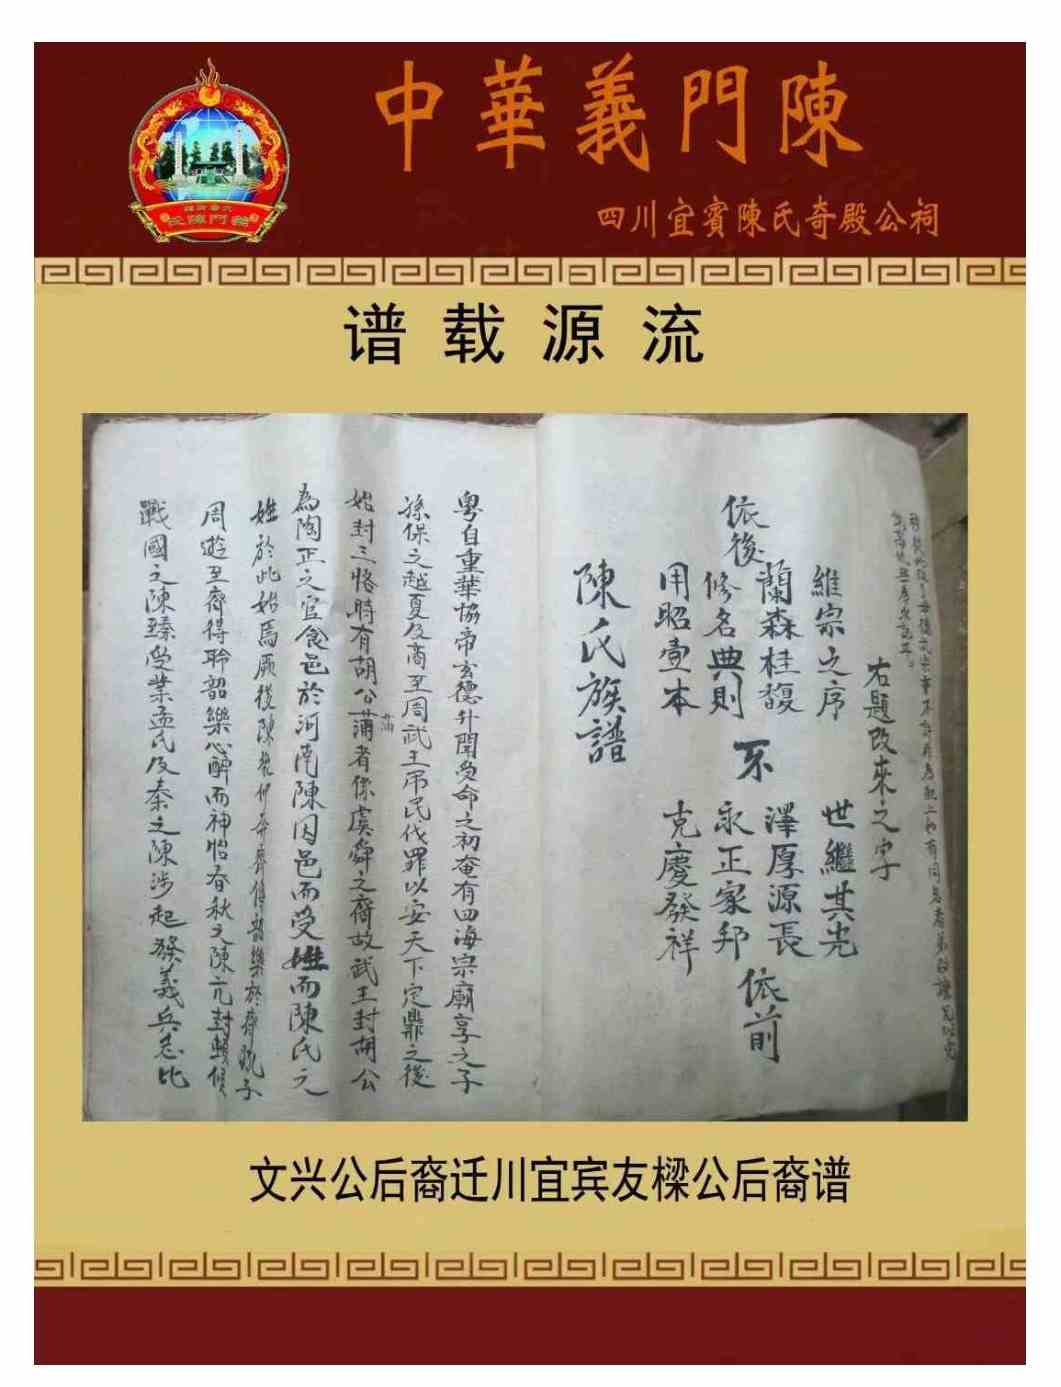 中華義門陳
四川宜賓陳氏奇殿公祠
谱载源流
右題改來之字
維宗之序 世繼其光
蘭森桂馥 澤厚源長
依後 修名典則 不 永正家邦 依前
用昭壹本 克慶發祥
陳氏族譜
粤自重華協帝玄德升聞受命之初奄有四海宗廟享之子
孫保之越夏及商至周武王吊民伐罪以安天下定鼎之後
始封三恪時有胡公蒲者係虞舜之裔故武王封胡公
蒲
為陶正之官食邑於河南陳因邑而受姓而陳氏之
姓於此始焉厥後陳 齊 韶樂於齊 子
周遊至齊得聆韶樂心醉而神怡春秋之陳亢封 侯
戰國之陳臻受業孟氏及秦之陳涉起發義兵 比
文兴公后裔迁川宜宾友樑公后裔谱